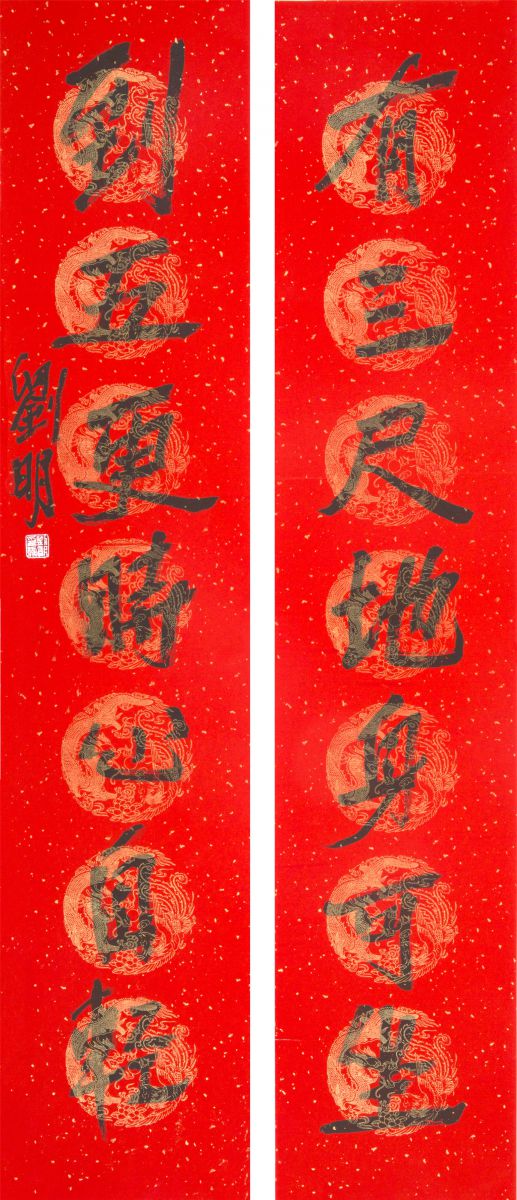 有三尺地身可坐
到五更時心自
劉明